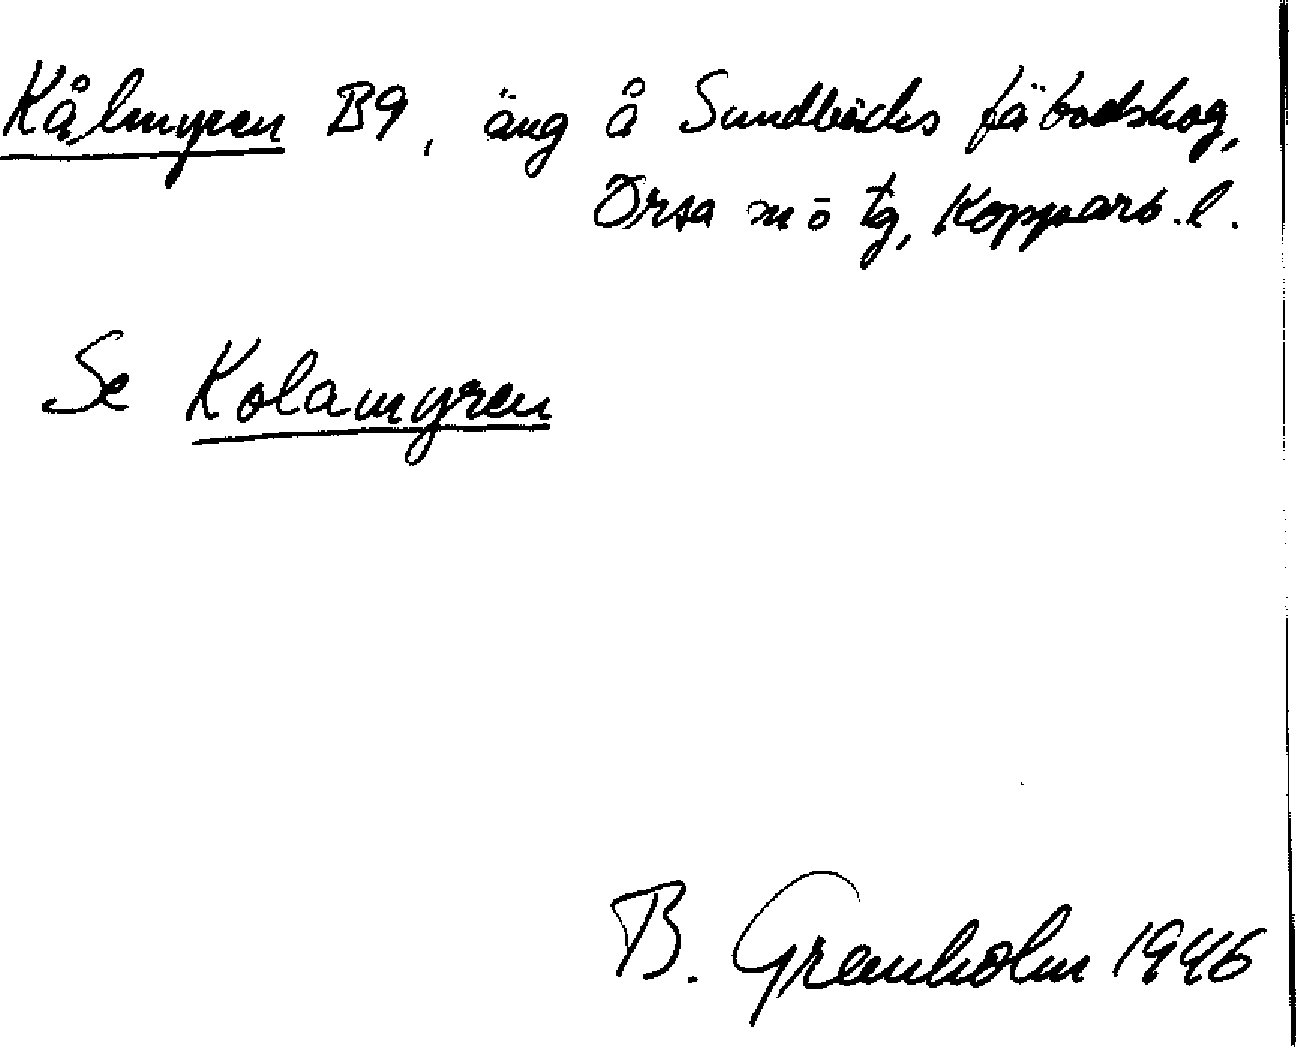 Kålmyren B9, äng å Sundbäcks fäbodskog,
Orsa nö tg, Kopparb.l.
Se Kolamyren
B. Granholm 1946